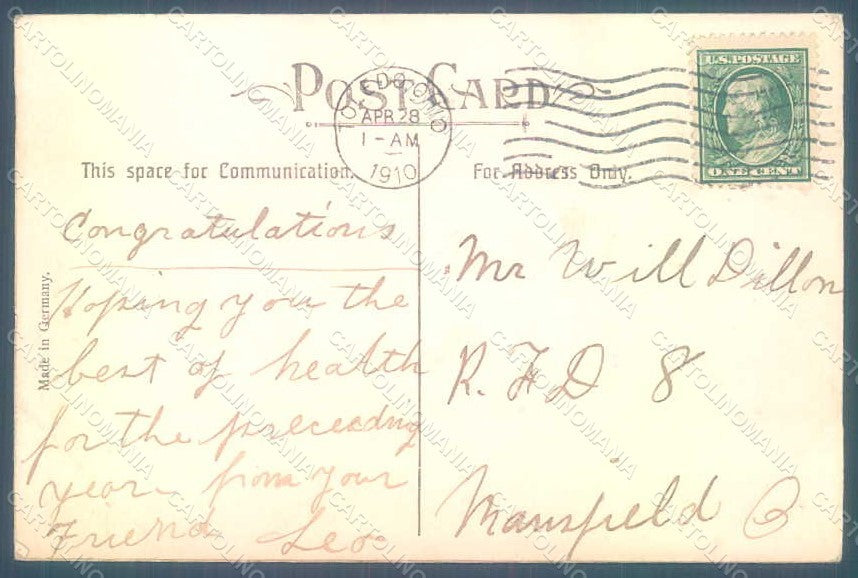 POST CARD
TOLEDO, OHIO
APR 28
1 - AM
1910
U.S. POSTAGE
ONE CENT
This space for Communication.
For Address Only.
Made in Germany.
Congratulations
Hoping you the
best of health
for the preceeding
year from your
Friend Leo
Mr Will Dillon
R. F. D 8
Mansfield O
CARTOLINOMANIA